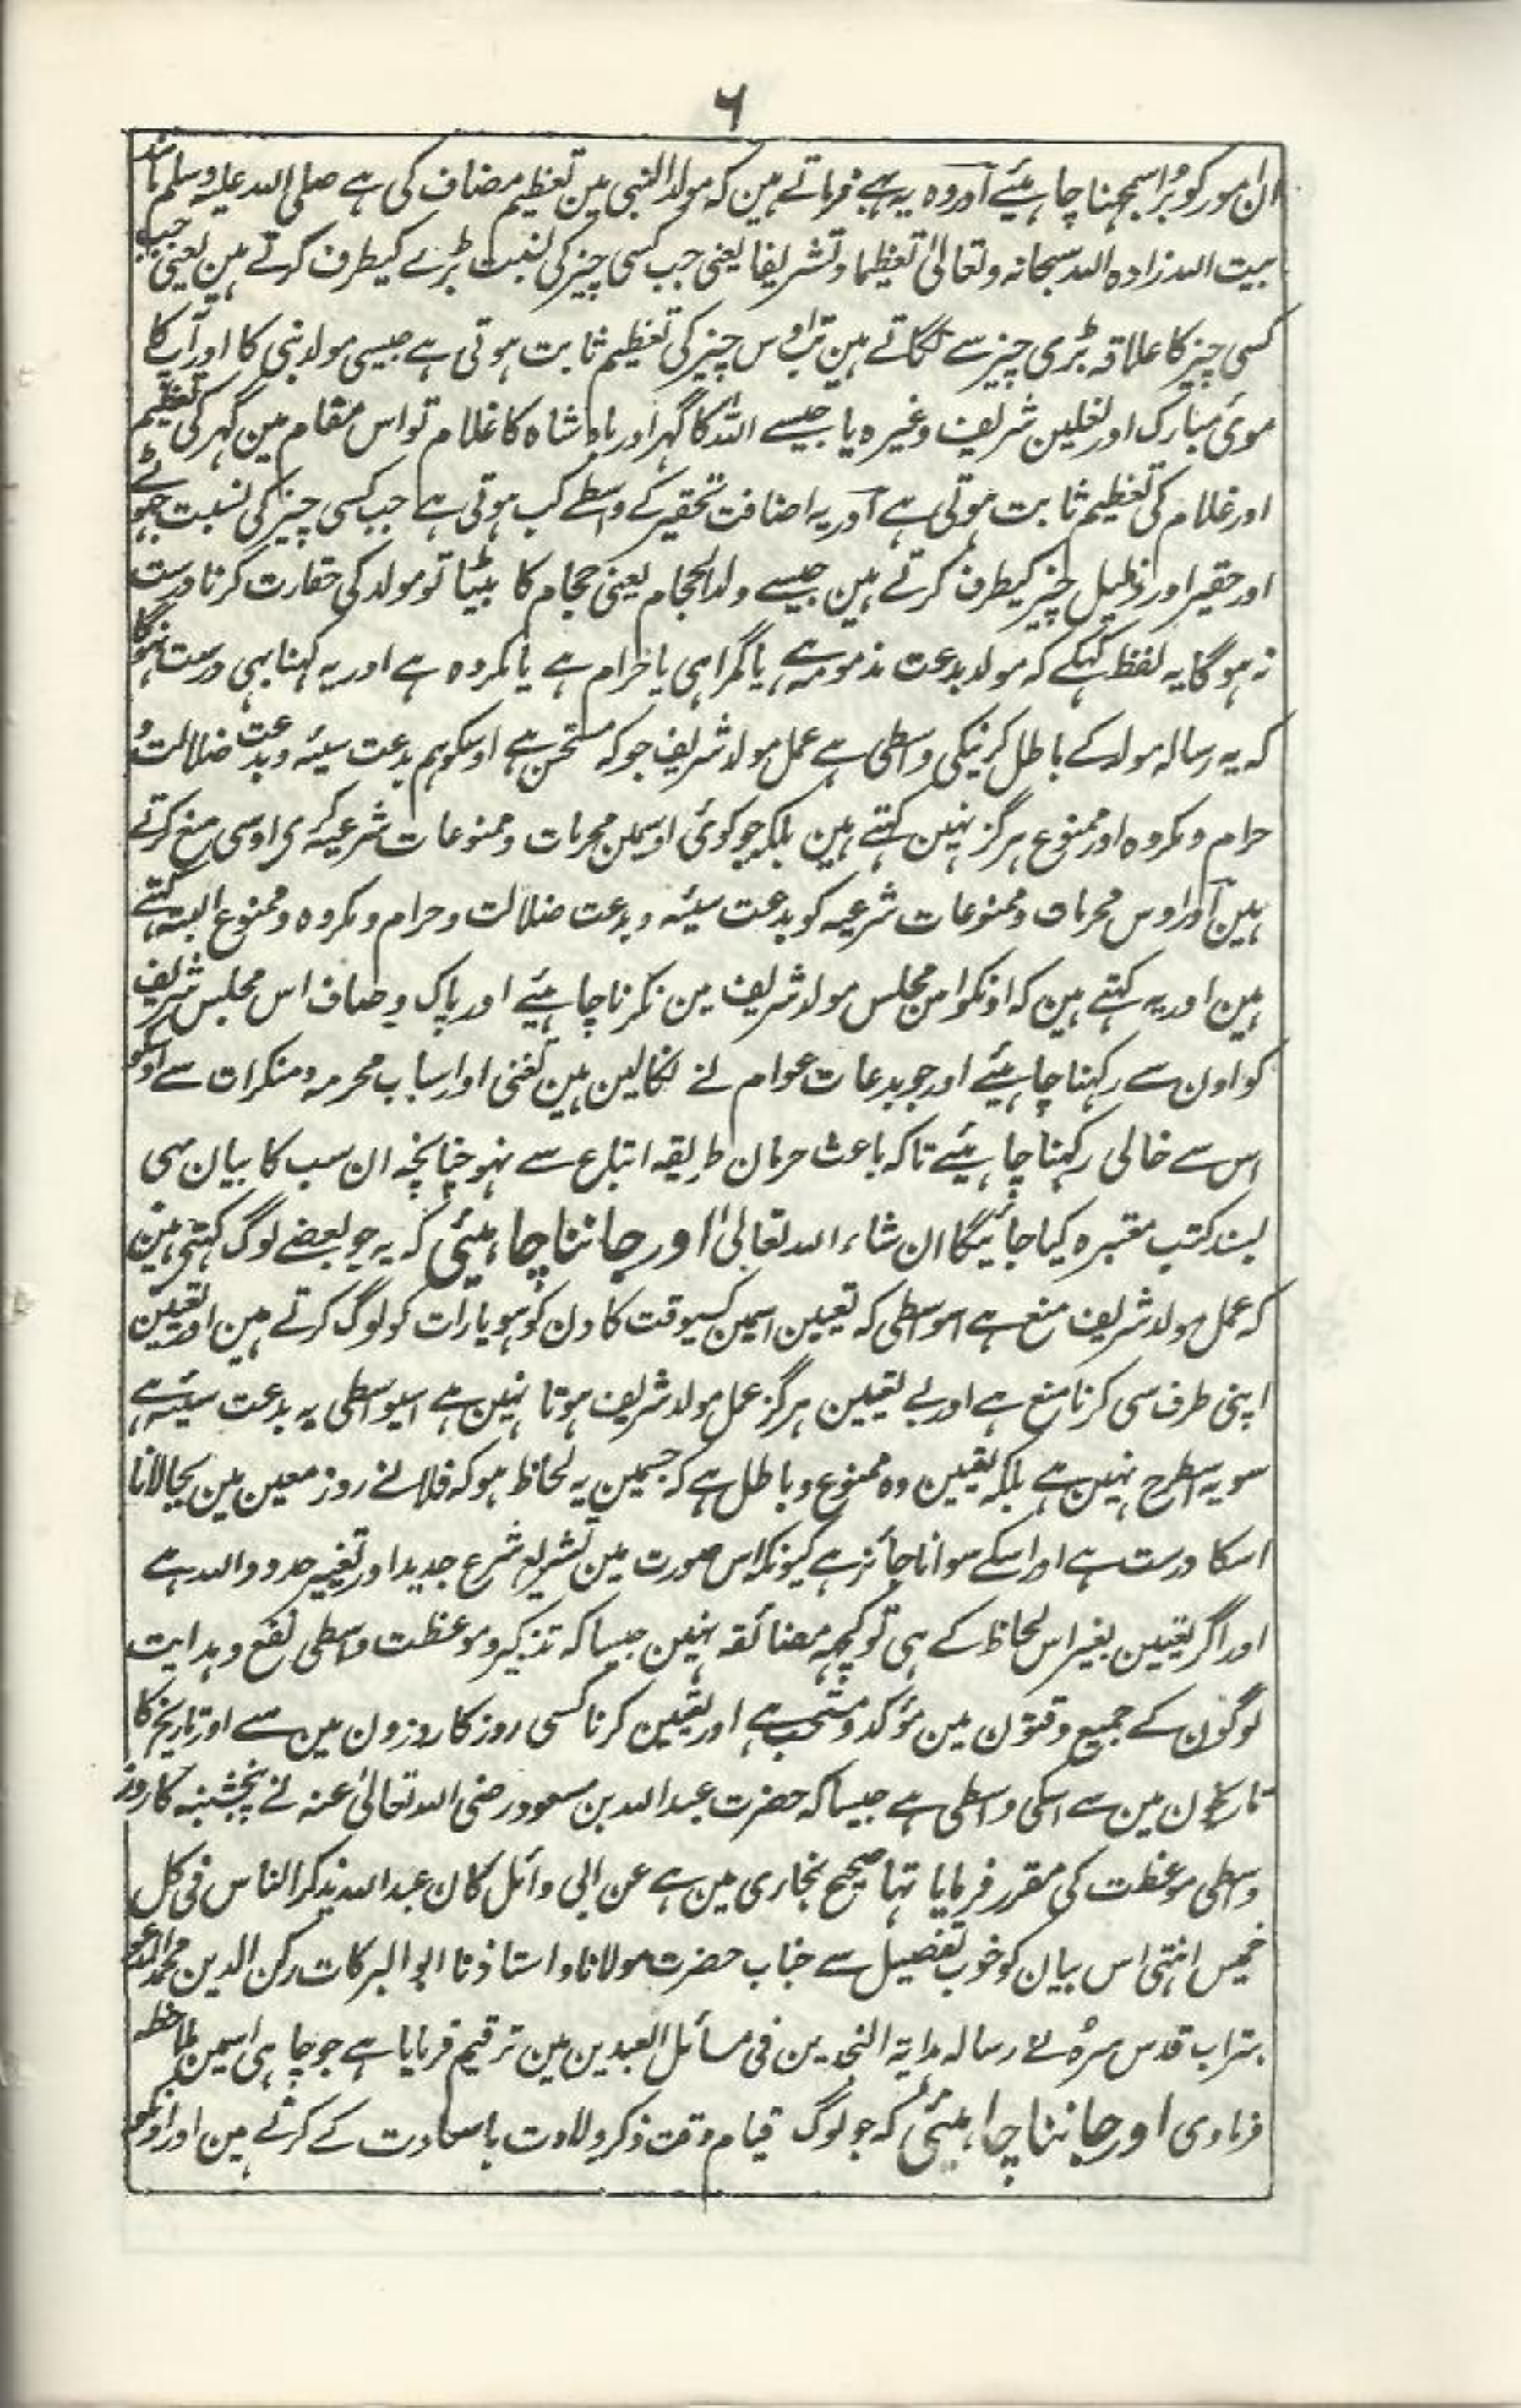 ۶
ان امور کو بُرا سمجہنا چاہئیے اور وہ یہ ہے فرماتے ہین کہ مولد النبی مین تعظیم مضاف کی ہے صلی اللہ علیہ وسلم مانند
بیت اللہ زادہ اللہ سبحانہ وتعالیٰ تعظیما وتشریفا یعنی جب کسی چیز کی نسبت بڑے کیطرف کرتے ہین یعنی جب
کسی چیز کا علاقہ بڑی چیز سے لگاتے ہین تب اوس چیز کی تعظیم ثابت ہوتی ہے جیسی مولد نبی کا اور آپ کا
موئ مبارک اور نعلین شریف وغیرہ یا جیسے اللہ کا گہر اور بادشاہ کا غلام تو اس مقام مین گہر کی تعظیم
اور غلام کی تعظیم ثابت ہوتی ہے اور یہ اضافت تحقیر کے واسطے کب ہوتی ہے جب کسی چیز کی نسبت چہوٹے
اور حقیر اور ذلیل چیز کیطرف کرتے ہین جیسے ولد الحجام یعنی حجام کا بیٹا تو مولد کی حقارت کرنا درست
نہ ہوگا یہ لفظ کہکے کہ مولد بدعت مذمومہ ہے یا گمراہی یا حرام ہے یا مکروہ ہے اور یہ کہنا بہی درست نہوگا
کہ یہ رسالہ مولد کے باطل کرنیکی واسطی ہے عمل مولد شریف جو کہ مستحسن ہے اوسکو ہم بدعت سیئہ وبدعت ضلالت و
حرام ومکروہ اور ممنوع ہرگز نہین کہتے ہین بلکہ جو کوئی اوسمین محرمات وممنوعات شرعیہ کرے اوسی منع کرتے
ہین اور اوس محرمات وممنوعات شرعیہ کو بدعت سیئہ وبدعت ضلالت وحرام ومکروہ وممنوع البتہ کہتے
ہین اور یہ کہتے ہین کہ اونکو اس مجلس مولد شریف مین نکرنا چاہئیے اور پاک وصاف اس مجلس شریف
کو اون سے رکہنا چاہئیے اور جو بدعات عوام نے نکالین ہین تغنی اور اسباب محرمہ ومنکرات سے اوسکو
اس سے خالی رکہنا چاہئیے تاکہ باعث حرمان طریقہ اتباع سے نہو چنانچہ ان سب کا بیان بہی
بسند کتب معتبرہ کیا جائیگا ان شاء اللہ تعالیٰ اور جاننا چاہئیی کہ یہ جو بعضے لوگ کہتی ہین
کہ عمل مولد شریف منع ہے اسواسطی کہ تعیین اسمین کسیوقت کا دن کو ہو یا رات کو لوگ کرتے ہین اور تعیین
اپنی طرف سی کرنا منع ہے اور بے تعیین ہرگز عمل مولد شریف ہوتا نہین ہے اسیواسطی یہ بدعت سیئہ ہے
سو یہ اسطرح نہین ہے بلکہ تعیین وہ ممنوع وباطل ہے کہ جسمین یہ لحاظ ہو کہ فلانے روز معین مین بجالانا
اسکا درست ہے اور اسکے سوا ناجائز ہے کیونکہ اس صورت مین تشریع شرع جدید اور تغییر حدود اللہ ہے
اور اگر تعیین بغیر اس لحاظ کے ہی تو کچہہ مضائقہ نہین جیسا کہ تذکیر وموعظت واسطی نفع وہدایت
لوگون کے جمیع وقتون مین مؤکد ومستحب ہے اور تعیین کرنا کسی روز کا روزون مین سے اور تاریخ کا
تاریخون مین سے اسکی واسطی ہے جیسا کہ حضرت عبد اللہ بن مسعود رضی اللہ تعالیٰ عنہ نے پنجشنبہ کا روز
واسطی موعظت کی مقرر فرمایا تہا صحیح بخاری مین ہے عن ابی وائل کان عبد اللہ یذکر الناس فی کل
خمیس انتہی اس بیان کو خوب تفصیل سے جناب حضرت مولانا واستاذنا ابو البرکات رکن الدین محمد المدعو
بتراب قدس سرہٗ نے رسالہ ہدایۃ النجدین فی مسائل العیدین مین ترقیم فرمایا ہے جو چاہی اسمین ملاحظہ
فرماوی اور جاننا چاہئیی کہ جو لوگ قیام وقت ذکر ولادت باسعادت کے کرتے ہین اور اونکو